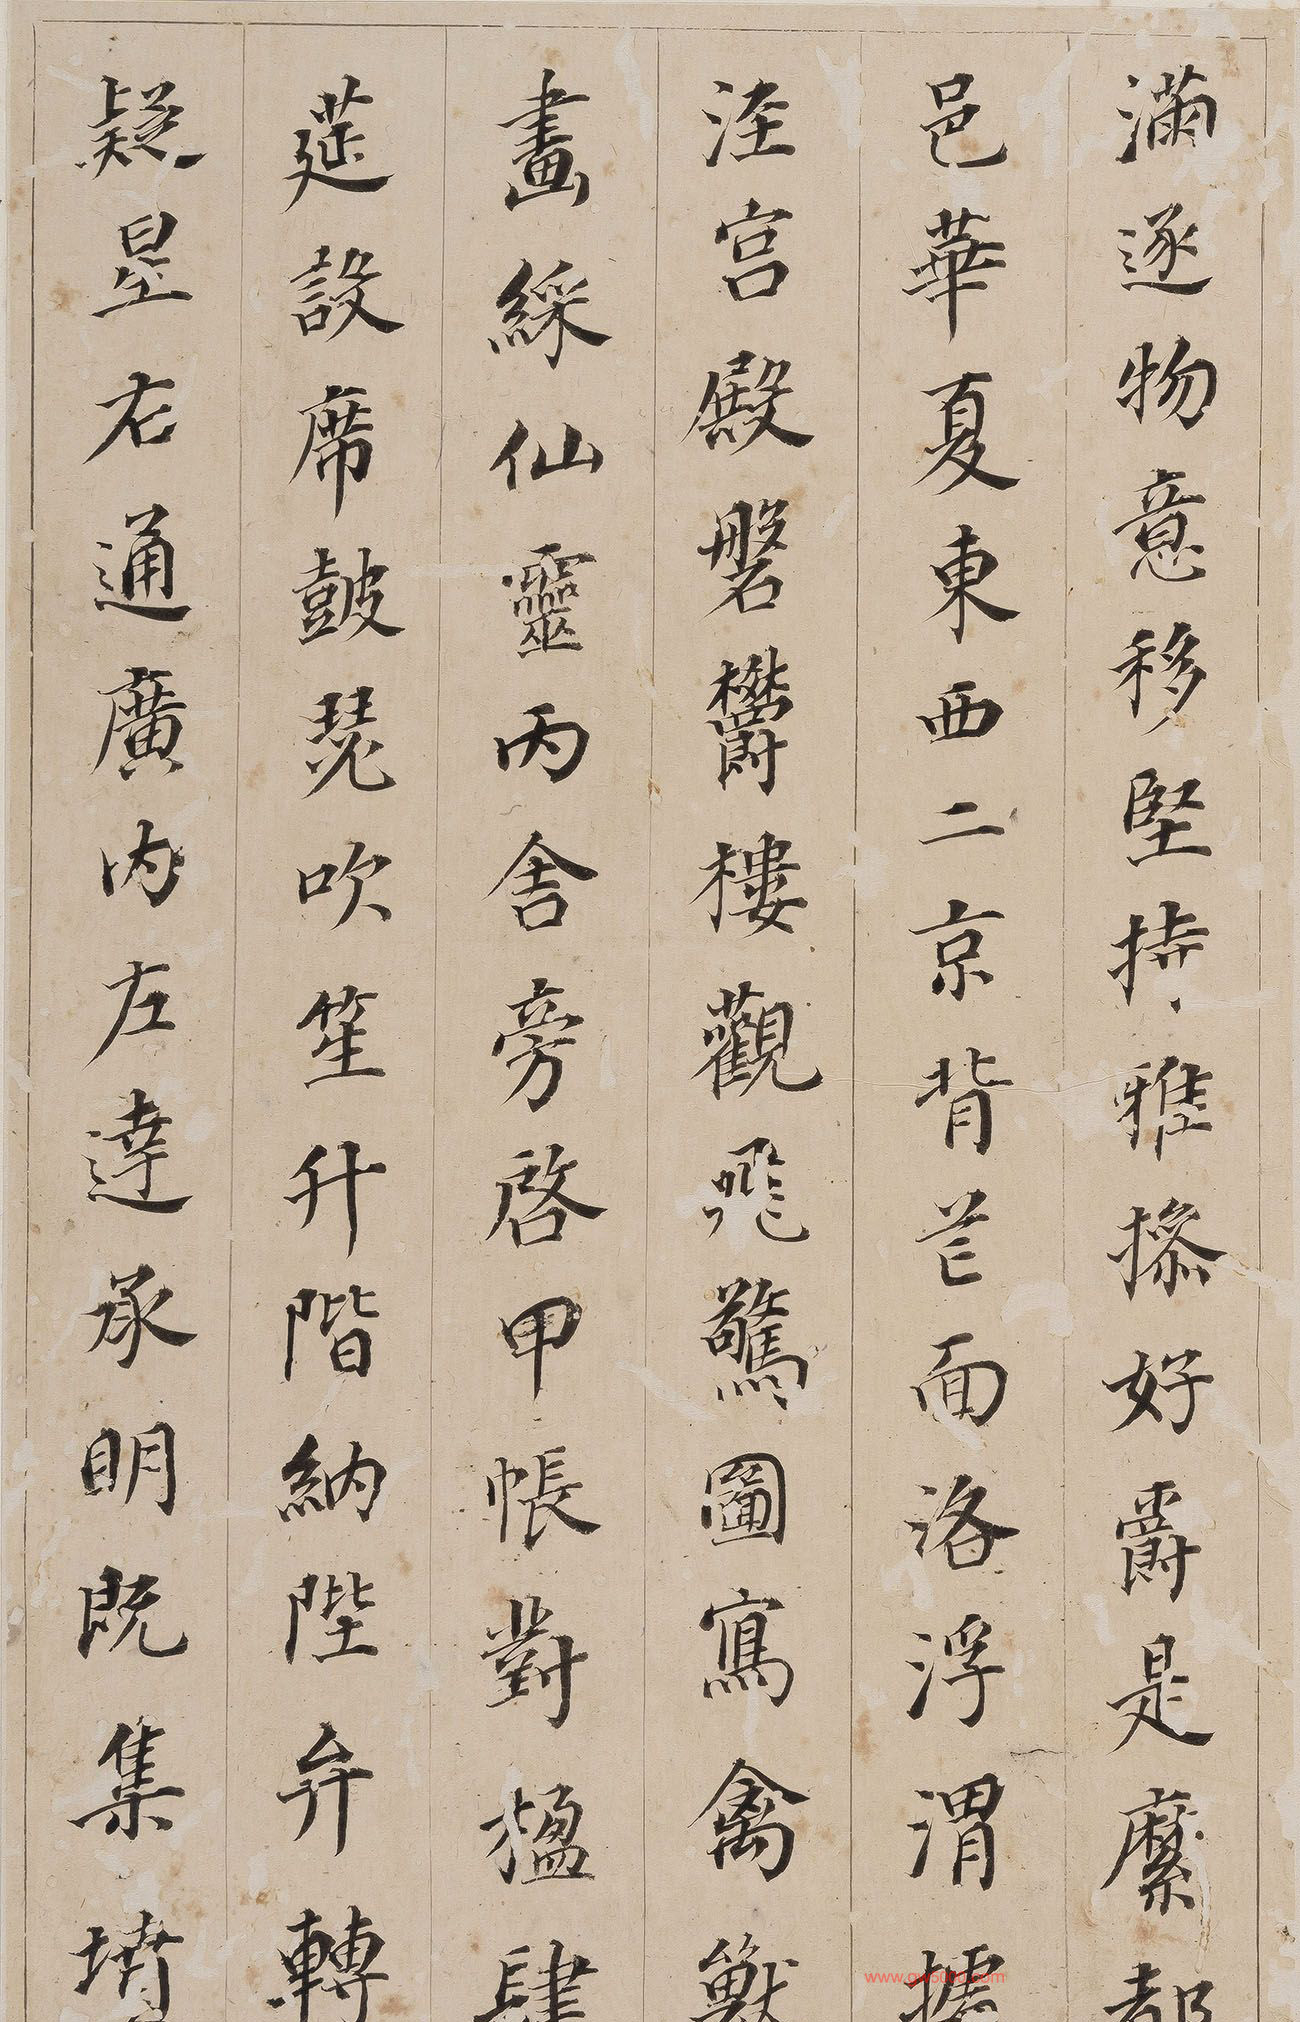 滿逐物意移堅持雅操好爵是縻都
邑華夏東西二京背芒面洛浮渭據
涇宮殿磐鬱樓觀飛驚圖寫禽獸
畫綵仙靈丙舍旁啓甲帳對楹肆
莚設席鼓瑟吹笙升階納陛弁轉
疑星右通廣內左達承明既集墳
www.gw5000.com